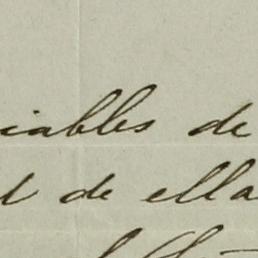 iables de
l de ella